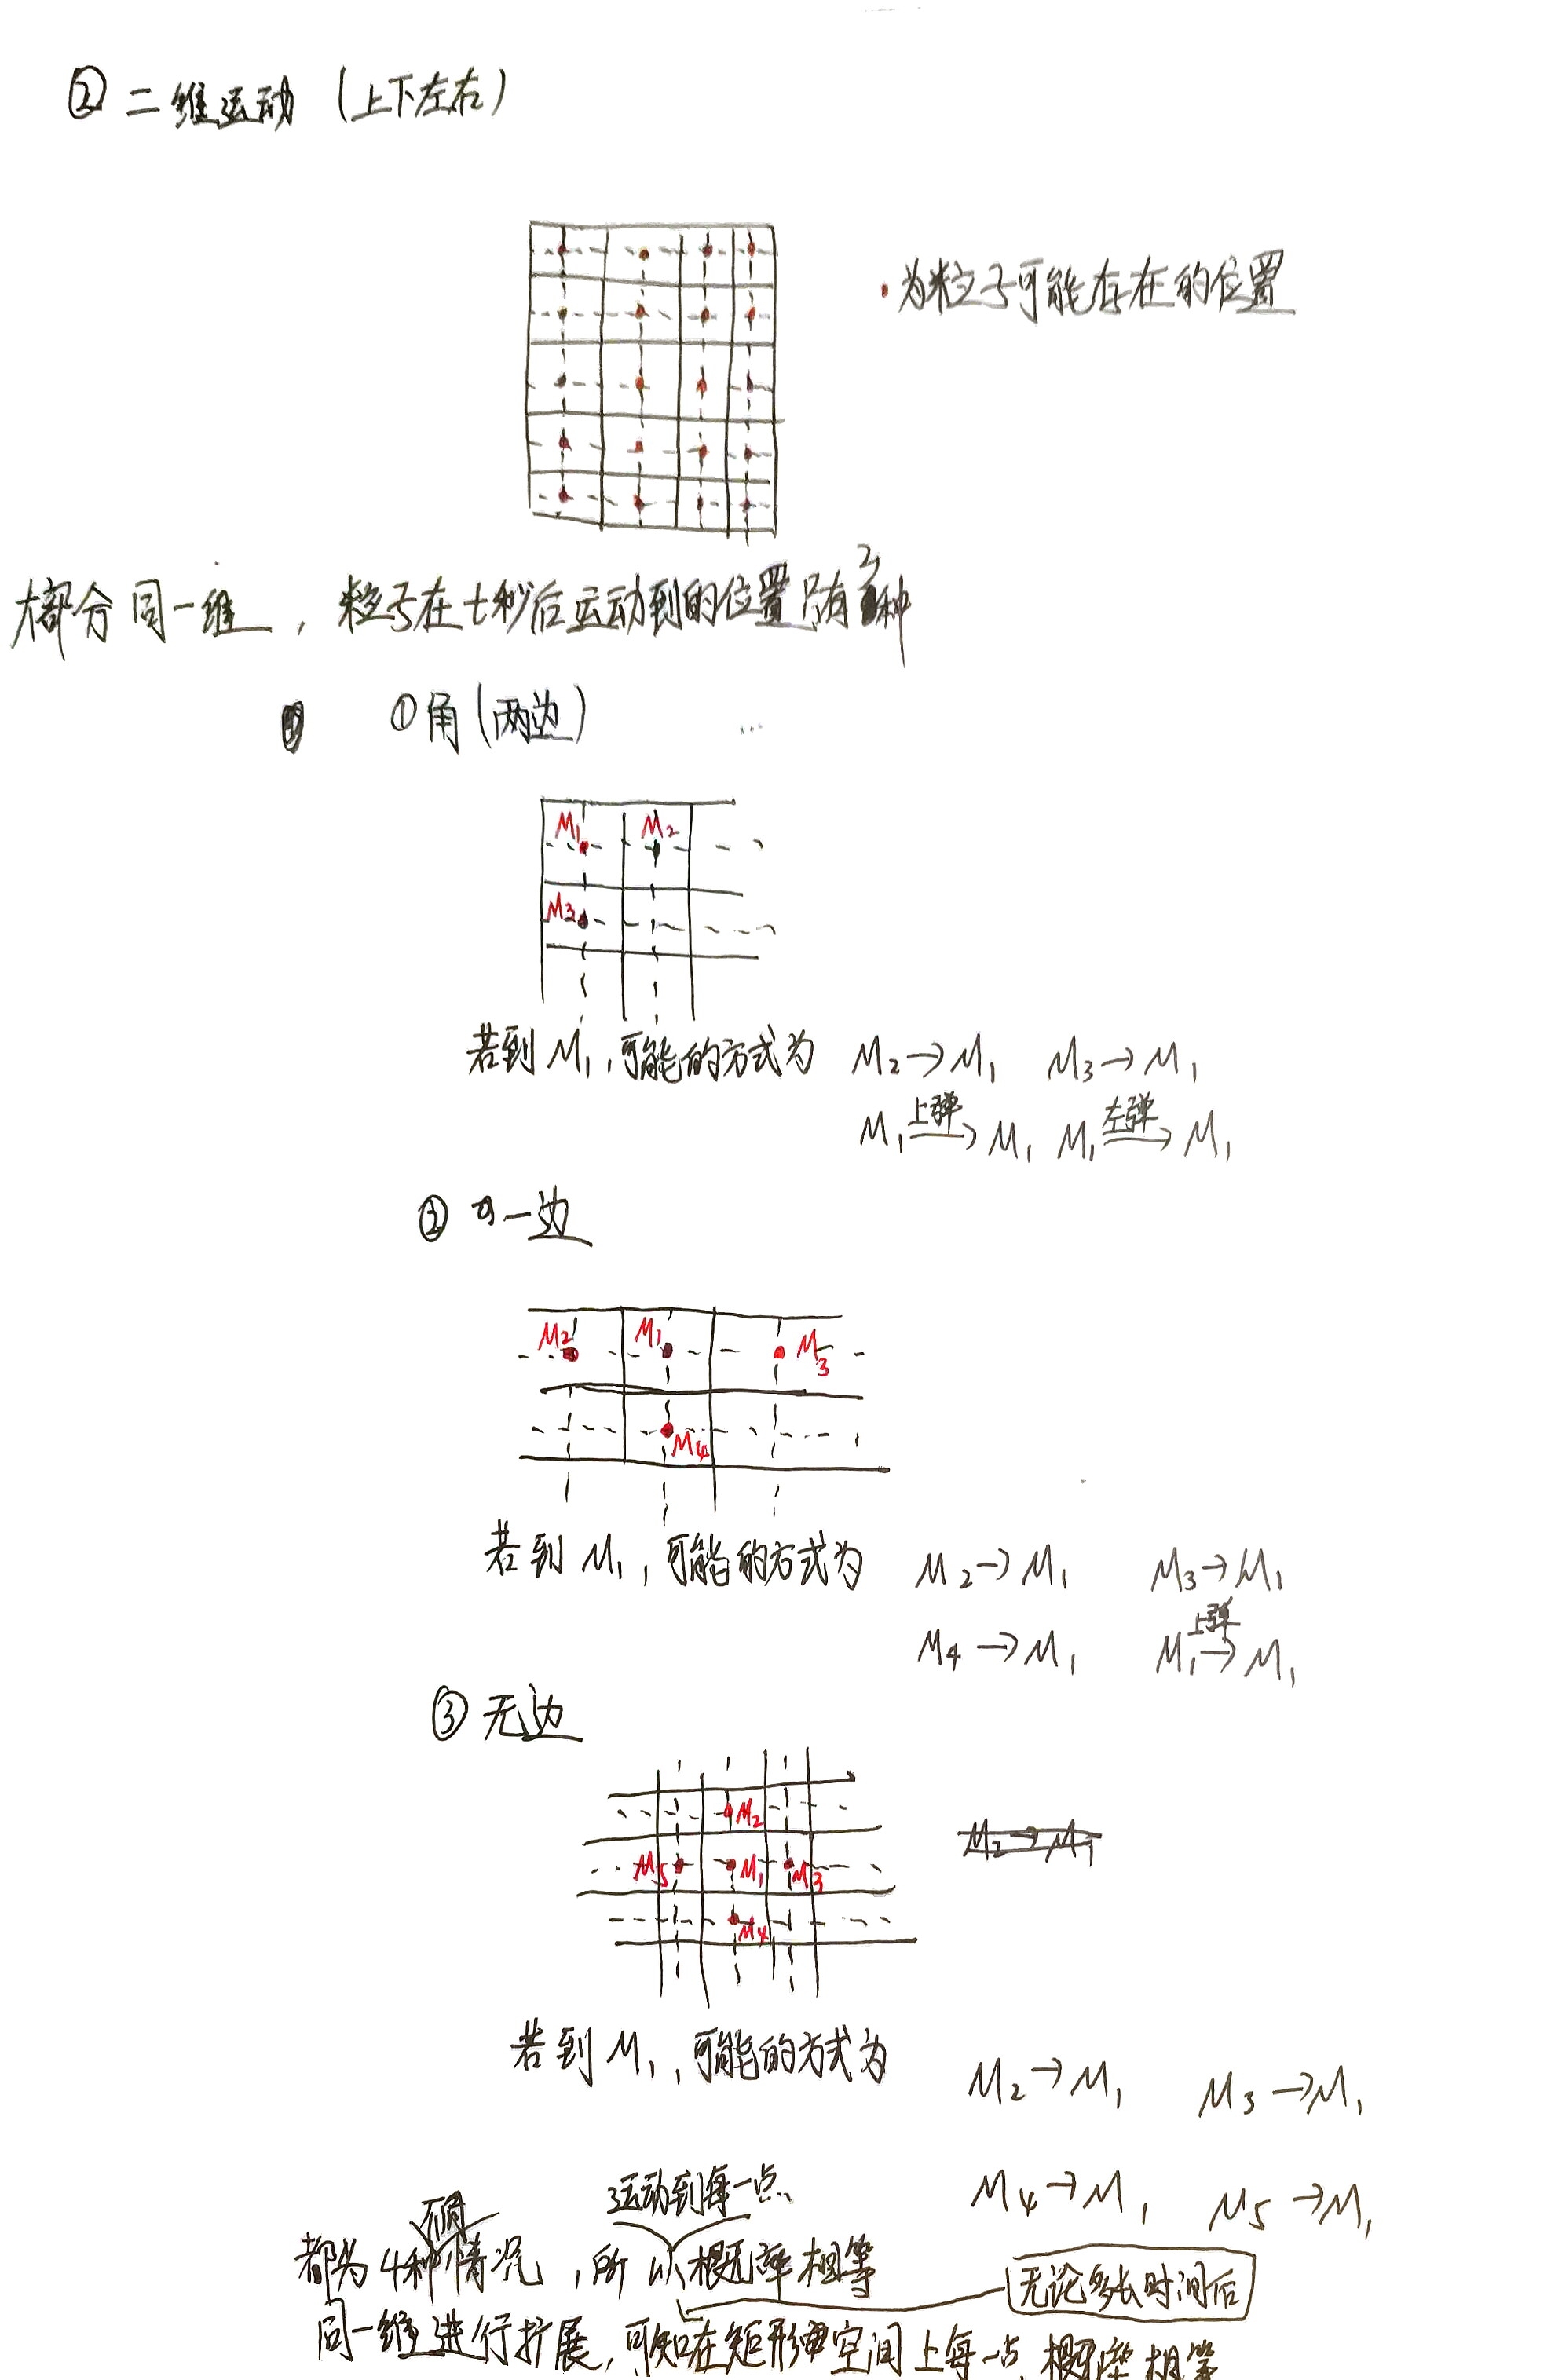 ② 二维运动 (上下左右)
·为粒子可能存在的位置
大部分同一维, 粒子在t秒后运动到的位置只有 种
①角(两边)
M₁ M₂
M₃
若到M₁,可能的方式为 M₂→M₁ M₃→M₁
上弹 左弹
M₁→M₁ M₁→M₁
② 一边
M₂ M₁ M₃
M₄
若到M₁,可能的方式为 M₂→M₁ M₃→M₁
上弹
M₄→M₁ M₁→M₁
③ 无边
M₂
M₂→M₁
M₅ M₁ M₃
M₄
若到M₁,可能的方式为
M₂→M₁ M₃→M₁
运动到每一点
M₄→M₁ M₅→M₁
不同
都为4种情况,所以概率相等
无论多长时间后
同一维进行扩展,可知在矩形 空间上每一点概率相等